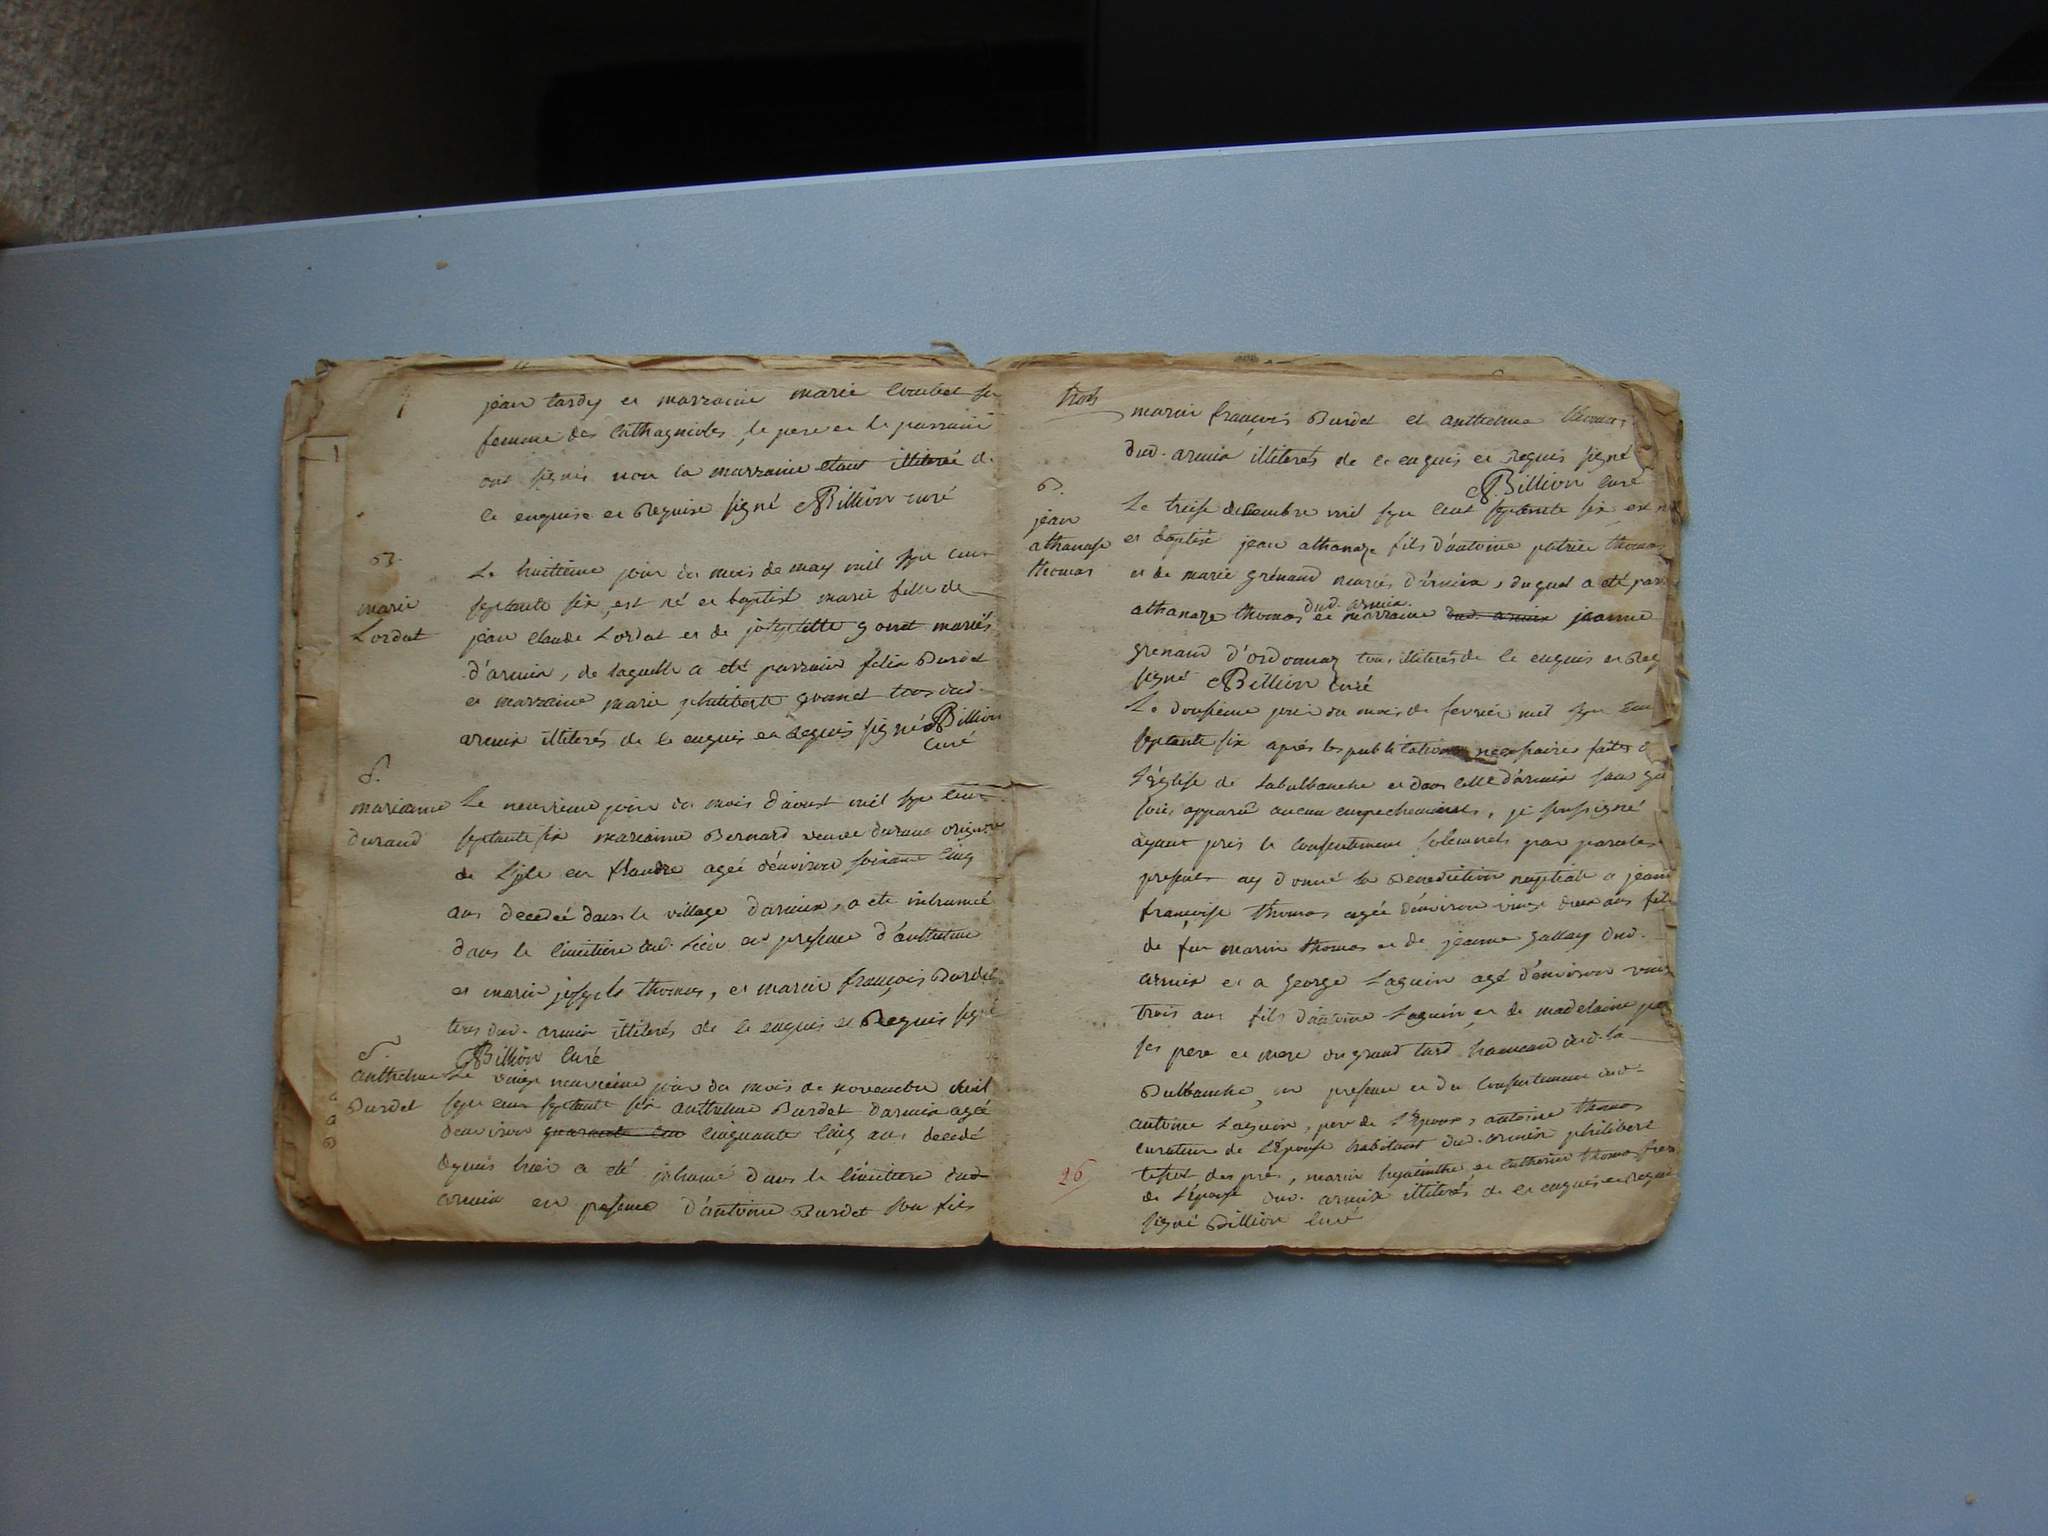 jean tardy et marraine marie Coudet sa
femme des Cathagnioles, le pere et le parrain
ont signés non la marraine etant illiteré de
ce enquise et Requise signé Billion curé
B.
marie
Lordat
Le huitieme jour du mois de may mil sept cent
septante six, est né et baptisé marie fille de
jean claude Lordat et de josephette gonet mariés
d'armix, de laquelle a eté parrain felix Burdet
et marraine marie philiberte gonet tous dud.
armix illiterés de ce enquis et Requis signé Billion
Curé
S.
marianne
durand
Le neuvieme jour du mois d'aoust mil sept cent
septante six marianne Bernard veuve durand origin
de Lisle en flandre agée d'environ soixante cinq
ans decedée dans le village d'armix, a eté inhumée
dans le cimitiere dud. Lieu en presence d'anthelme
et marin joseph thomas, et marin françois Burdet
tous dud. armix illiterés de ce enquis et Requis signé
Billion Curé
S.
anthelme
Burdet
Le vingt neuvieme jour du mois de novembre mil
sept cent septante six anthelme Burdet d'armix agé
d'environ quarante cinq cinquante cinq ans decedé
depuis hier a eté inhumé dans le cimitiere dud
armix en presence d'antoine Burdet son fils
trois
marin françois Burdet et anthelme thomas
dud. armix illiterés de ce enquis et Requis signé
Billion Curé
B.
jean
athanase
thomas
Le treise decembre mil sept cent septante six est né
et baptisé jean athanaze fils d'antoine patrice thomas
et de marie grenand mariés d'armix, duquel a eté par
athanaze thomas dud. armix. et marraine dud. armix jeanne
grenand d'ordonnaz tous illiterés de ce enquis et Req
signé Billion Curé
Le dousieme jour du mois de fevrier mil sept cent
septante six aprés les publications necessaires faites
L'église de Laburbanche et dans celle d'armix sans qu
soit apparu aucun empechement, je soussigné
ayant pris le consentement solemnel par paroles
presents ay donné la Benediction nuptiale a jeanne
françoise thomas agée d'environ vingt deux ans fille
de feu marin thomas et de jeanne gallay dud.
armix et a george Laguin agé d'environ vingt
trois ans fils d'antoine Laguin et de madelaine
ses pere et mere du grand tard hameau dud. la
Burbanche, en presence et du consentement dud.
antoine Laguin, pere de L'epoux, antoine thomas
curateur de L'epouse habitant dud. armix philibert
tetut des prés, marin hyacinthe et catherin thomas freres
de L'epouse dud. armix illiterés de ce enquis et Requis
signé Billion Curé
26